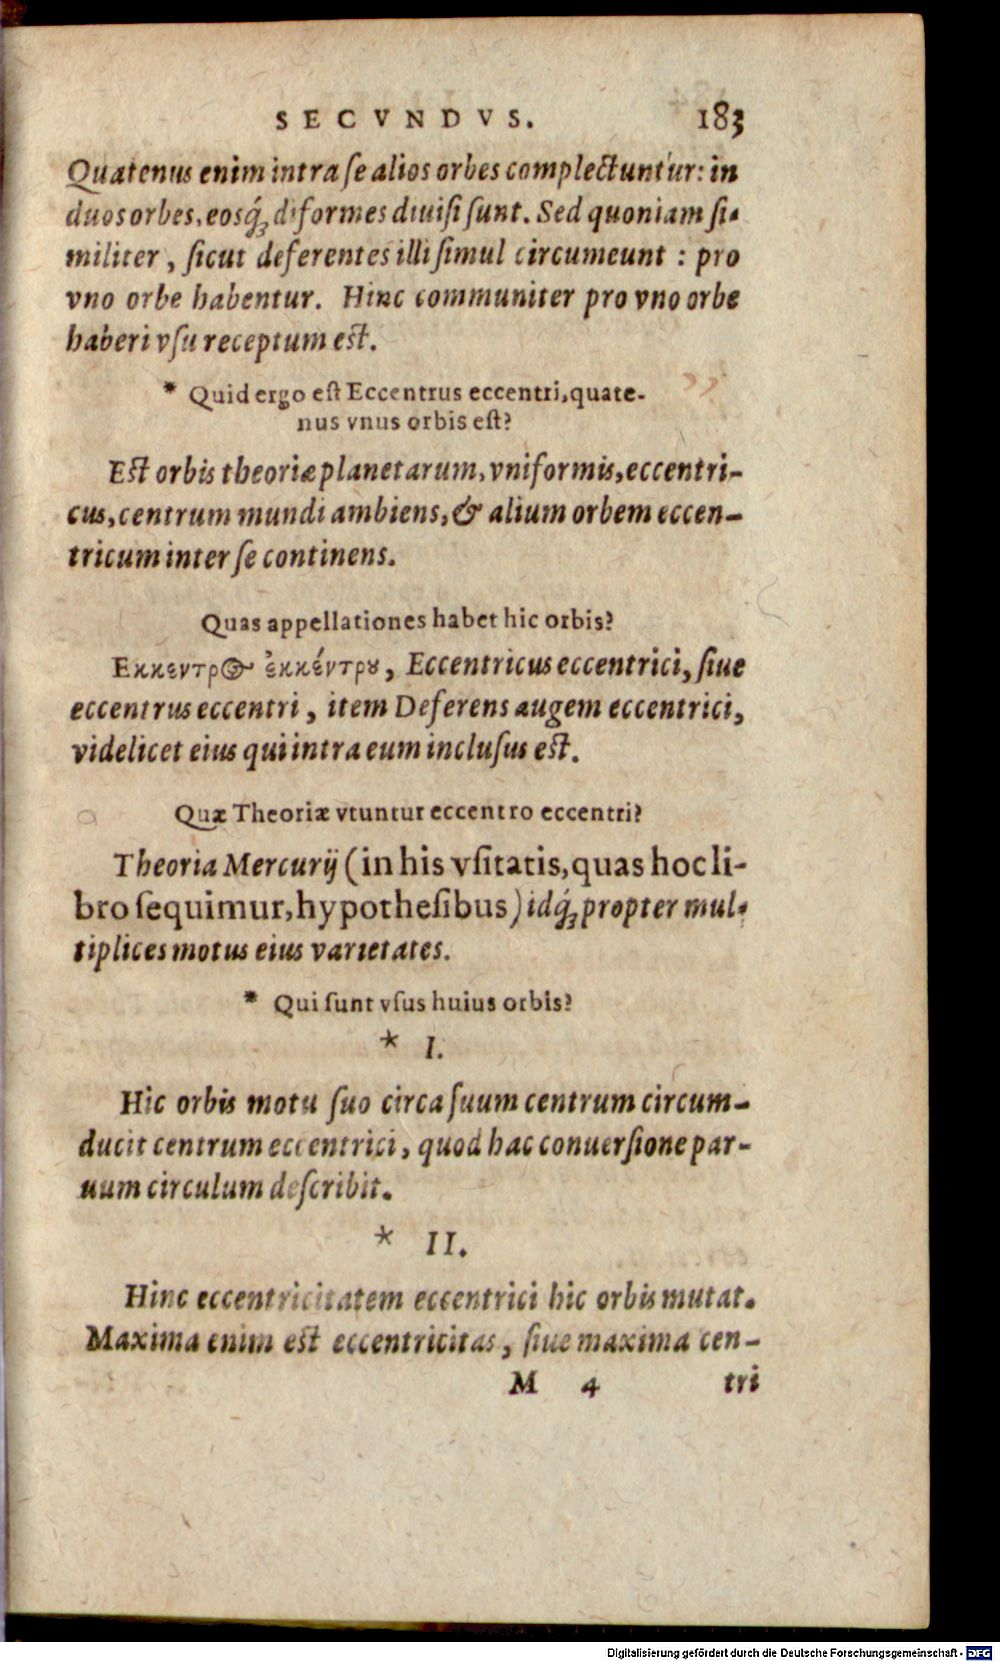 SECVNDVS. 183
Quatenus enim intra ſe alios orbes complectuntur: in
duos orbes, eosq́ꝫ diformes diuiſi ſunt. Sed quoniam ſi-
militer, ſicut deferentes illi ſimul circumeunt : pro
vno orbe habentur. Hinc communiter pro vno orbe
haberi vſu receptum eſt.
* Quid ergo eſt Eccentrus eccentri, quate-
nus vnus orbis eſt?
Eſt orbis theoriæ planetarum, vniformis, eccentri-
cus, centrum mundi ambiens, & alium orbem eccen-
tricum inter ſe continens.
Quas appellationes habet hic orbis?
Εκκεντρος ἐκκέντρου, Eccentricus eccentrici, ſiue
eccentrus eccentri, item Deferens augem eccentrici,
videlicet eius qui intra eum incluſus eſt.
Quæ Theoriæ vtuntur eccentro eccentri?
Theoria Mercurij (in his vſitatis, quas hoc li-
bro ſequimur, hypotheſibus) idq́ꝫ propter mul-
tiplices motus eius varietates.
* Qui ſunt vſus huius orbis?
* I.
Hic orbis motu ſuo circa ſuum centrum circum-
ducit centrum eccentrici, quod hac conuerſione par-
uum circulum deſcribit.
* II.
Hinc eccentricitatem eccentrici hic orbis mutat.
Maxima enim eſt eccentricitas, ſiue maxima cen-
M 4 tri
Digitalisierung gefördert durch die Deutsche Forschungsgemeinschaft - DFG